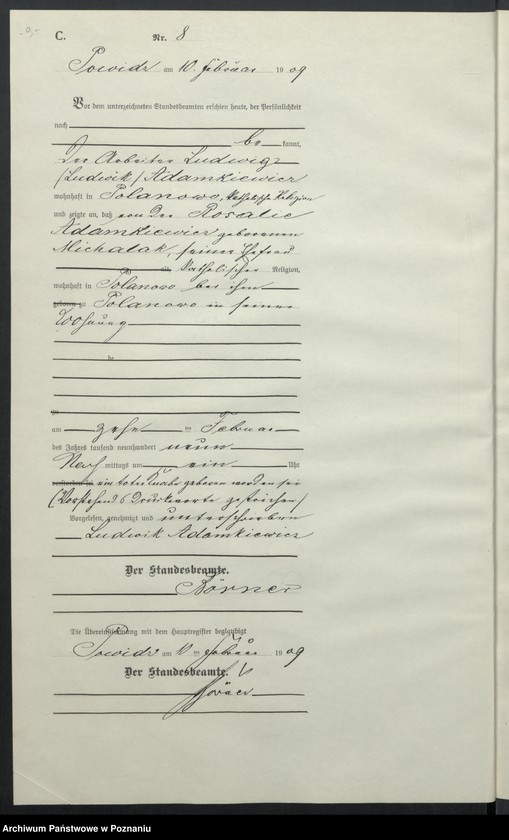 C.
Nr. 8
Powidz am 10. Februar 1909
Vor dem unterzeichneten Standesbeamten erschien heute, der Persönlichkeit
nach
be kannt,
der Arbeiter Ludwig
(Ludwik) Adamkiewicz
wohnhaft in Polanowo, katholische Religion
und zeigte an, daß von der Rosalie
Adamkiewicz geborenen
Michalak, seiner Ehefrau
alt, katholischer Religion,
wohnhaft in Polanowo bei ihm
geboren zu Polanowo in seiner
Wohnung
de
zu
am zehn ten Februar
des Jahres tausend neunhundert neun
Nach mittags um ein Uhr
verstorben sei ein totes Knabe geboren worden sei
(Vorstehend 6 Druckworte gestrichen)
Vorgelesen, genehmigt und unterschrieben
Ludwik Adamkiewicz
Der Standesbeamte.
Börner
Die Übereinstimmung mit dem Hauptregister beglaubigt
Powidz am 10 ten Februar 1909
Der Standesbeamte.
Archiwum Państwowe w Poznaniu